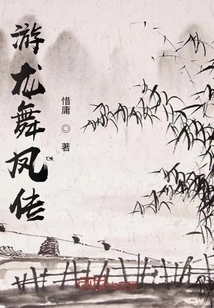 游龙舞凤传
惜庸◎著